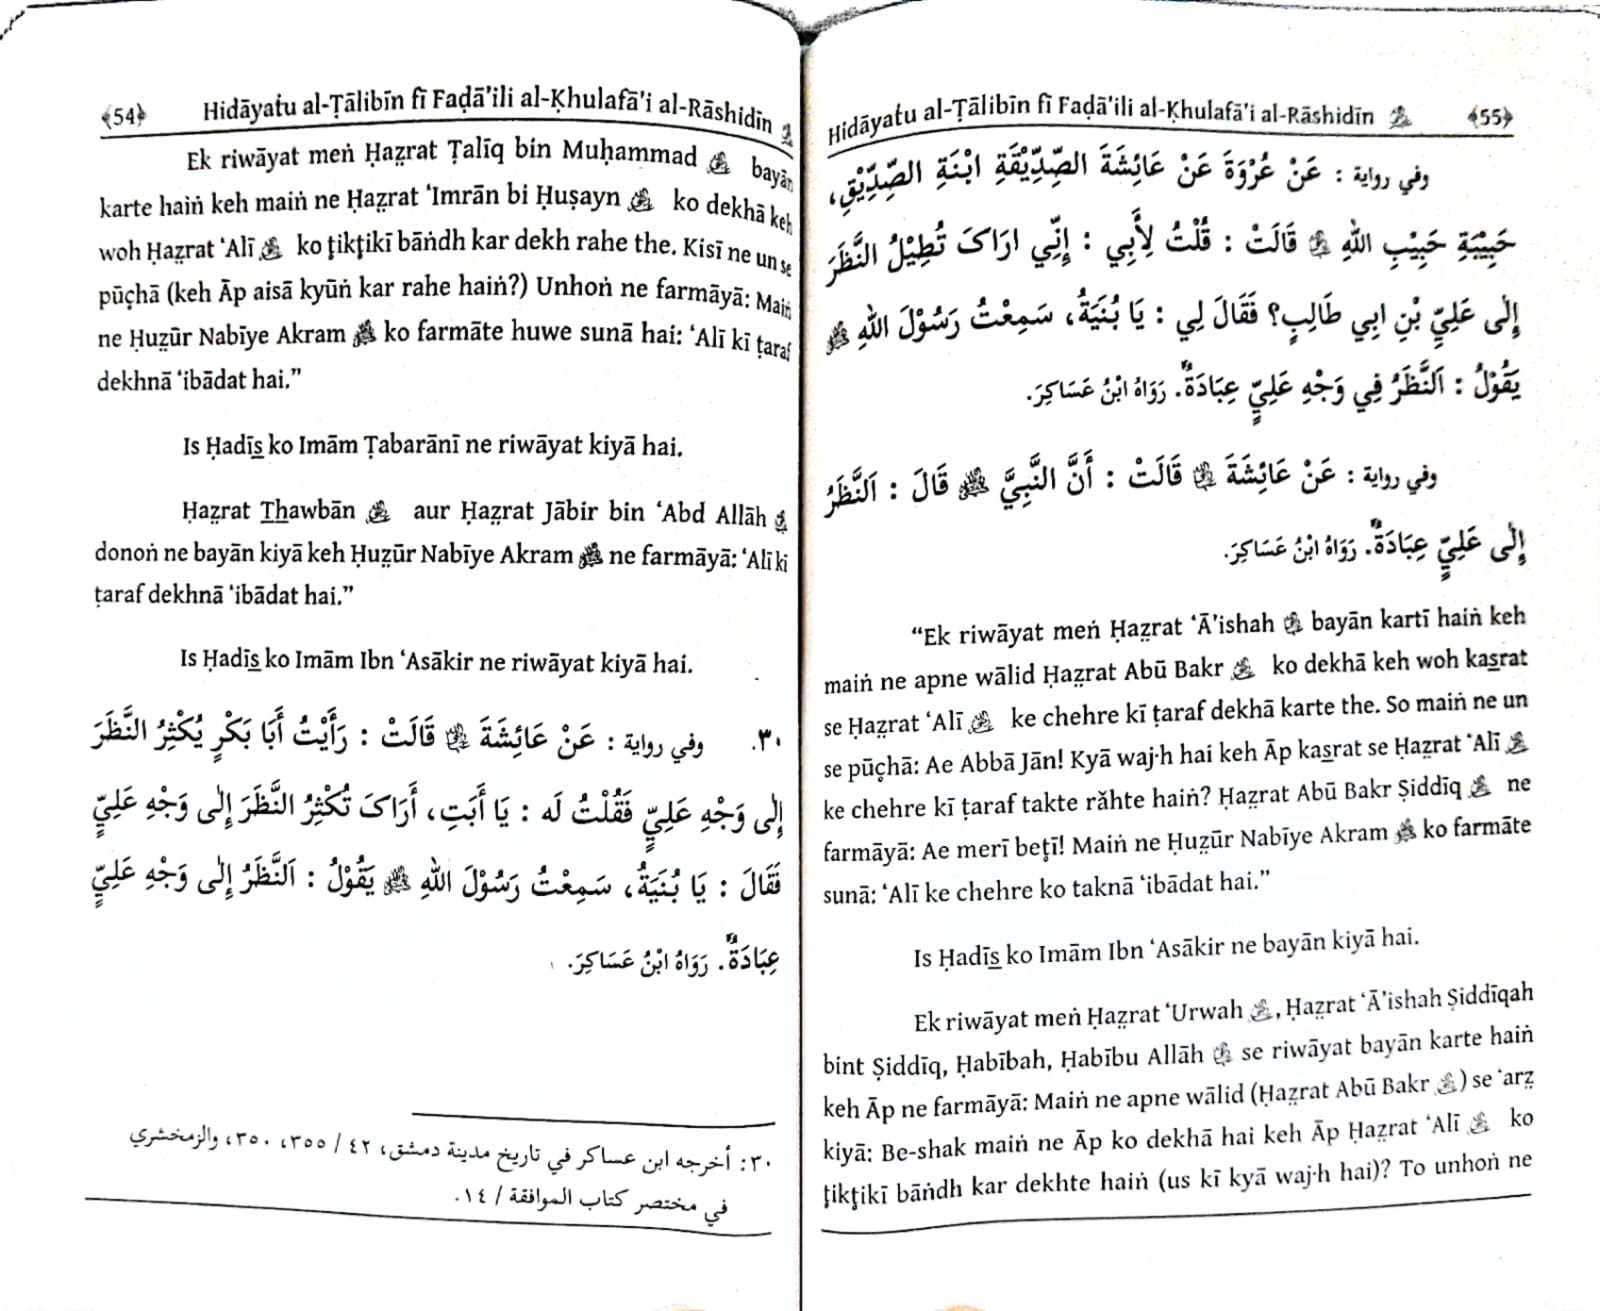 ﴾54﴿ Hidāyatu al-Ṭālibīn fī Faḍā'ili al-Ḳhulafā'i al-Rāshidīn
Ek riwāyat meṅ Ḥaẓrat Ṭalīq bin Muḥammad ؓ bayān
karte haiṅ keh maiṅ ne Ḥaẓrat ‘Imrān bi Ḥuṣayn ؓ ko dekhā keh
woh Ḥaẓrat ‘Alī ؓ ko ṭikṭikī bāṅdh kar dekh rahe the. Kisī ne un se
pūçhā (keh Āp aisā kyūṅ kar rahe haiṅ?) Unhoṅ ne farmāyā: Maiṅ
ne Ḥuẓūr Nabīye Akram ﷺ ko farmāte huwe sunā hai: ‘Alī kī ṭaraf
dekhnā ‘ibādat hai.”
Is Ḥadīs̲ ko Imām Ṭabarānī ne riwāyat kiyā hai.
Ḥaẓrat T̲h̲awbān ؓ aur Ḥaẓrat Jābir bin ‘Abd Allāh ؓ
donoṅ ne bayān kiyā keh Ḥuẓūr Nabīye Akram ﷺ ne farmāyā: ‘Alī ki
ṭaraf dekhnā ‘ibādat hai.”
Is Ḥadīs̲ ko Imām Ibn ‘Asākir ne riwāyat kiyā hai.
٣٠. وفي رواية : عَنْ عَائِشَةَ ؓ قَالَتْ : رَأَيْتُ أَبَا بَكْرٍ يُكْثِرُ النَّظَرَ
إِلٰى وَجْهِ عَلِيٍّ فَقُلْتُ لَه : يَا أَبَتِ، أَرَاكَ تُكْثِرُ النَّظَرَ إِلٰى وَجْهِ عَلِيٍّ
فَقَالَ : يَا بُنَيَةُ، سَمِعْتُ رَسُوْلَ اللهِ ﷺ يَقُوْلُ : اَلنَّظَرُ إِلٰى وَجْهِ عَلِيٍّ
عِبَادَةٌ. رَوَاهُ ابْنُ عَسَاكِرَ.
٣٠: أخرجه ابن عساكر في تاريخ مدينة دمشق، ٤٢ / ٣٥٥، ٣٥٠، والزمخشري
في مختصر كتاب الموافقة / ١٤.
Hidāyatu al-Ṭālibīn fī Faḍā'ili al-Ḳhulafā'i al-Rāshidīn ﴾55﴿
وفي رواية : عَنْ عُرْوَةَ عَنْ عَائِشَةَ الصِّدِّيْقَةِ ابْنَةِ الصِّدِّيْقِ،
حَبِيْبَةِ حَبِيْبِ اللهِ ؓ قَالَتْ : قُلْتُ لِأَبِي : إِنِّي ارَاكَ تُطِيْلُ النَّظَرَ
إِلٰى عَلِيِّ بْنِ ابِي طَالِبٍ؟ فَقَالَ لِي : يَا بُنَيَةُ، سَمِعْتُ رَسُوْلَ اللهِ ﷺ
يَقُوْلُ : اَلنَّظَرُ فِي وَجْهِ عَلِيٍّ عِبَادَةٌ. رَوَاهُ ابْنُ عَسَاكِرَ.
وفي رواية : عَنْ عَائِشَةَ ؓ قَالَتْ : أَنَّ النَّبِيَّ ﷺ قَالَ : اَلنَّظَرُ
إِلٰى عَلِيٍّ عِبَادَةٌ. رَوَاهُ ابْنُ عَسَاكِرَ.
“Ek riwāyat meṅ Ḥaẓrat ‘Ā’ishah ؓ bayān kartī haiṅ keh
maiṅ ne apne wālid Ḥaẓrat Abū Bakr ؓ ko dekhā keh woh kas̲rat
se Ḥaẓrat ‘Alī ؓ ke chehre kī ṭaraf dekhā karte the. So maiṅ ne un
se pūçhā: Ae Abbā Jān! Kyā waj·h hai keh Āp kas̲rat se Ḥaẓrat ‘Alī ؓ
ke chehre kī ṭaraf takte răhte haiṅ? Ḥaẓrat Abū Bakr Ṣiddīq ؓ ne
farmāyā: Ae merī beṭī! Maiṅ ne Ḥuẓūr Nabīye Akram ﷺ ko farmāte
sunā: ‘Alī ke chehre ko taknā ‘ibādat hai.”
Is Ḥadīs̲ ko Imām Ibn ‘Asākir ne bayān kiyā hai.
Ek riwāyat meṅ Ḥaẓrat ‘Urwah ؓ, Ḥaẓrat ‘Ā’ishah Ṣiddīqah
bint Ṣiddīq, Ḥabībah, Ḥabību Allāh ؓ se riwāyat bayān karte haiṅ
keh Āp ne farmāyā: Maiṅ ne apne wālid (Ḥaẓrat Abū Bakr ؓ) se ‘arẓ
kiyā: Be-shak maiṅ ne Āp ko dekhā hai keh Āp Ḥaẓrat ‘Alī ؓ ko
ṭikṭikī bāṅdh kar dekhte haiṅ (us kī kyā waj·h hai)? To unhoṅ ne